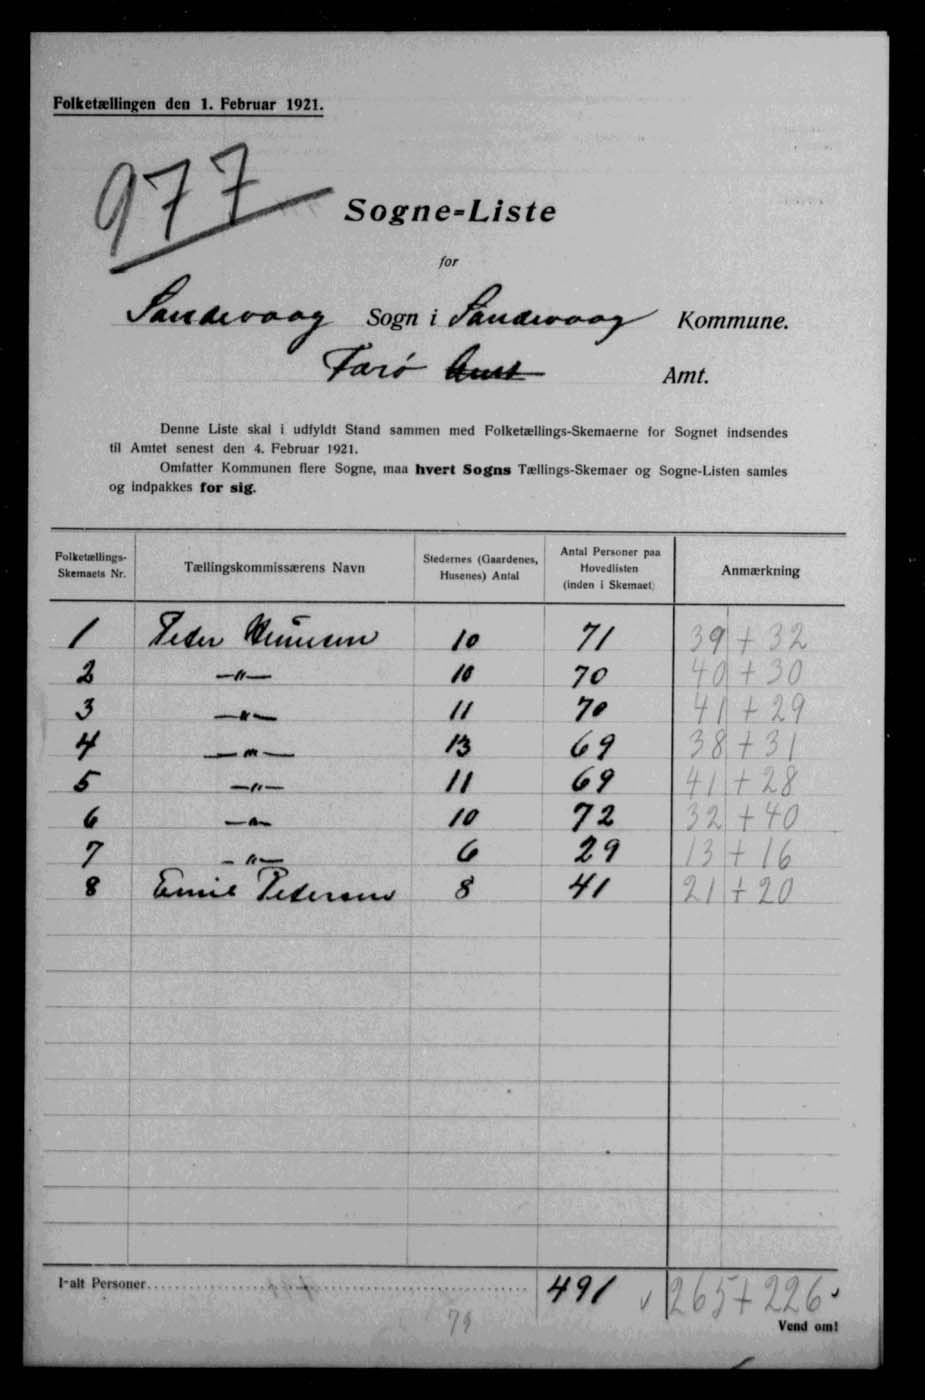 Folketællingen den 1. Februar 1921.
977
Sogne-Liste
for
Sandevaag Sogn i Sandevaag Kommune.
Færø Amt Amt.
Denne Liste skal i udfyldt Stand sammen med Folketællings-Skemaerne for Sognet indsendes
til Amtet senest den 4. Februar 1921.
Omfatter Kommunen flere Sogne, maa hvert Sogns Tællings-Skemaer og Sogne-Listen samles
og indpakkes for sig.
Folketællings-Skemaets Nr. Tællingskommissærens Navn Stedernes (Gaardenes, Husenes) Antal Antal Personer paa Hovedlisten (inden i Skemaet) Anmærkning
1 Peder 10 71 39 + 32
2 —"— 10 70 40 + 30
3 —"— 11 70 41 + 29
4 —"— 13 69 38 + 31
5 —"— 11 69 41 + 28
6 —"— 10 72 32 + 40
7 —"— 6 29 13 + 16
8 Emil Petersen 8 41 21 + 20
I-alt Personer 491 265 + 226
79
Vend om!